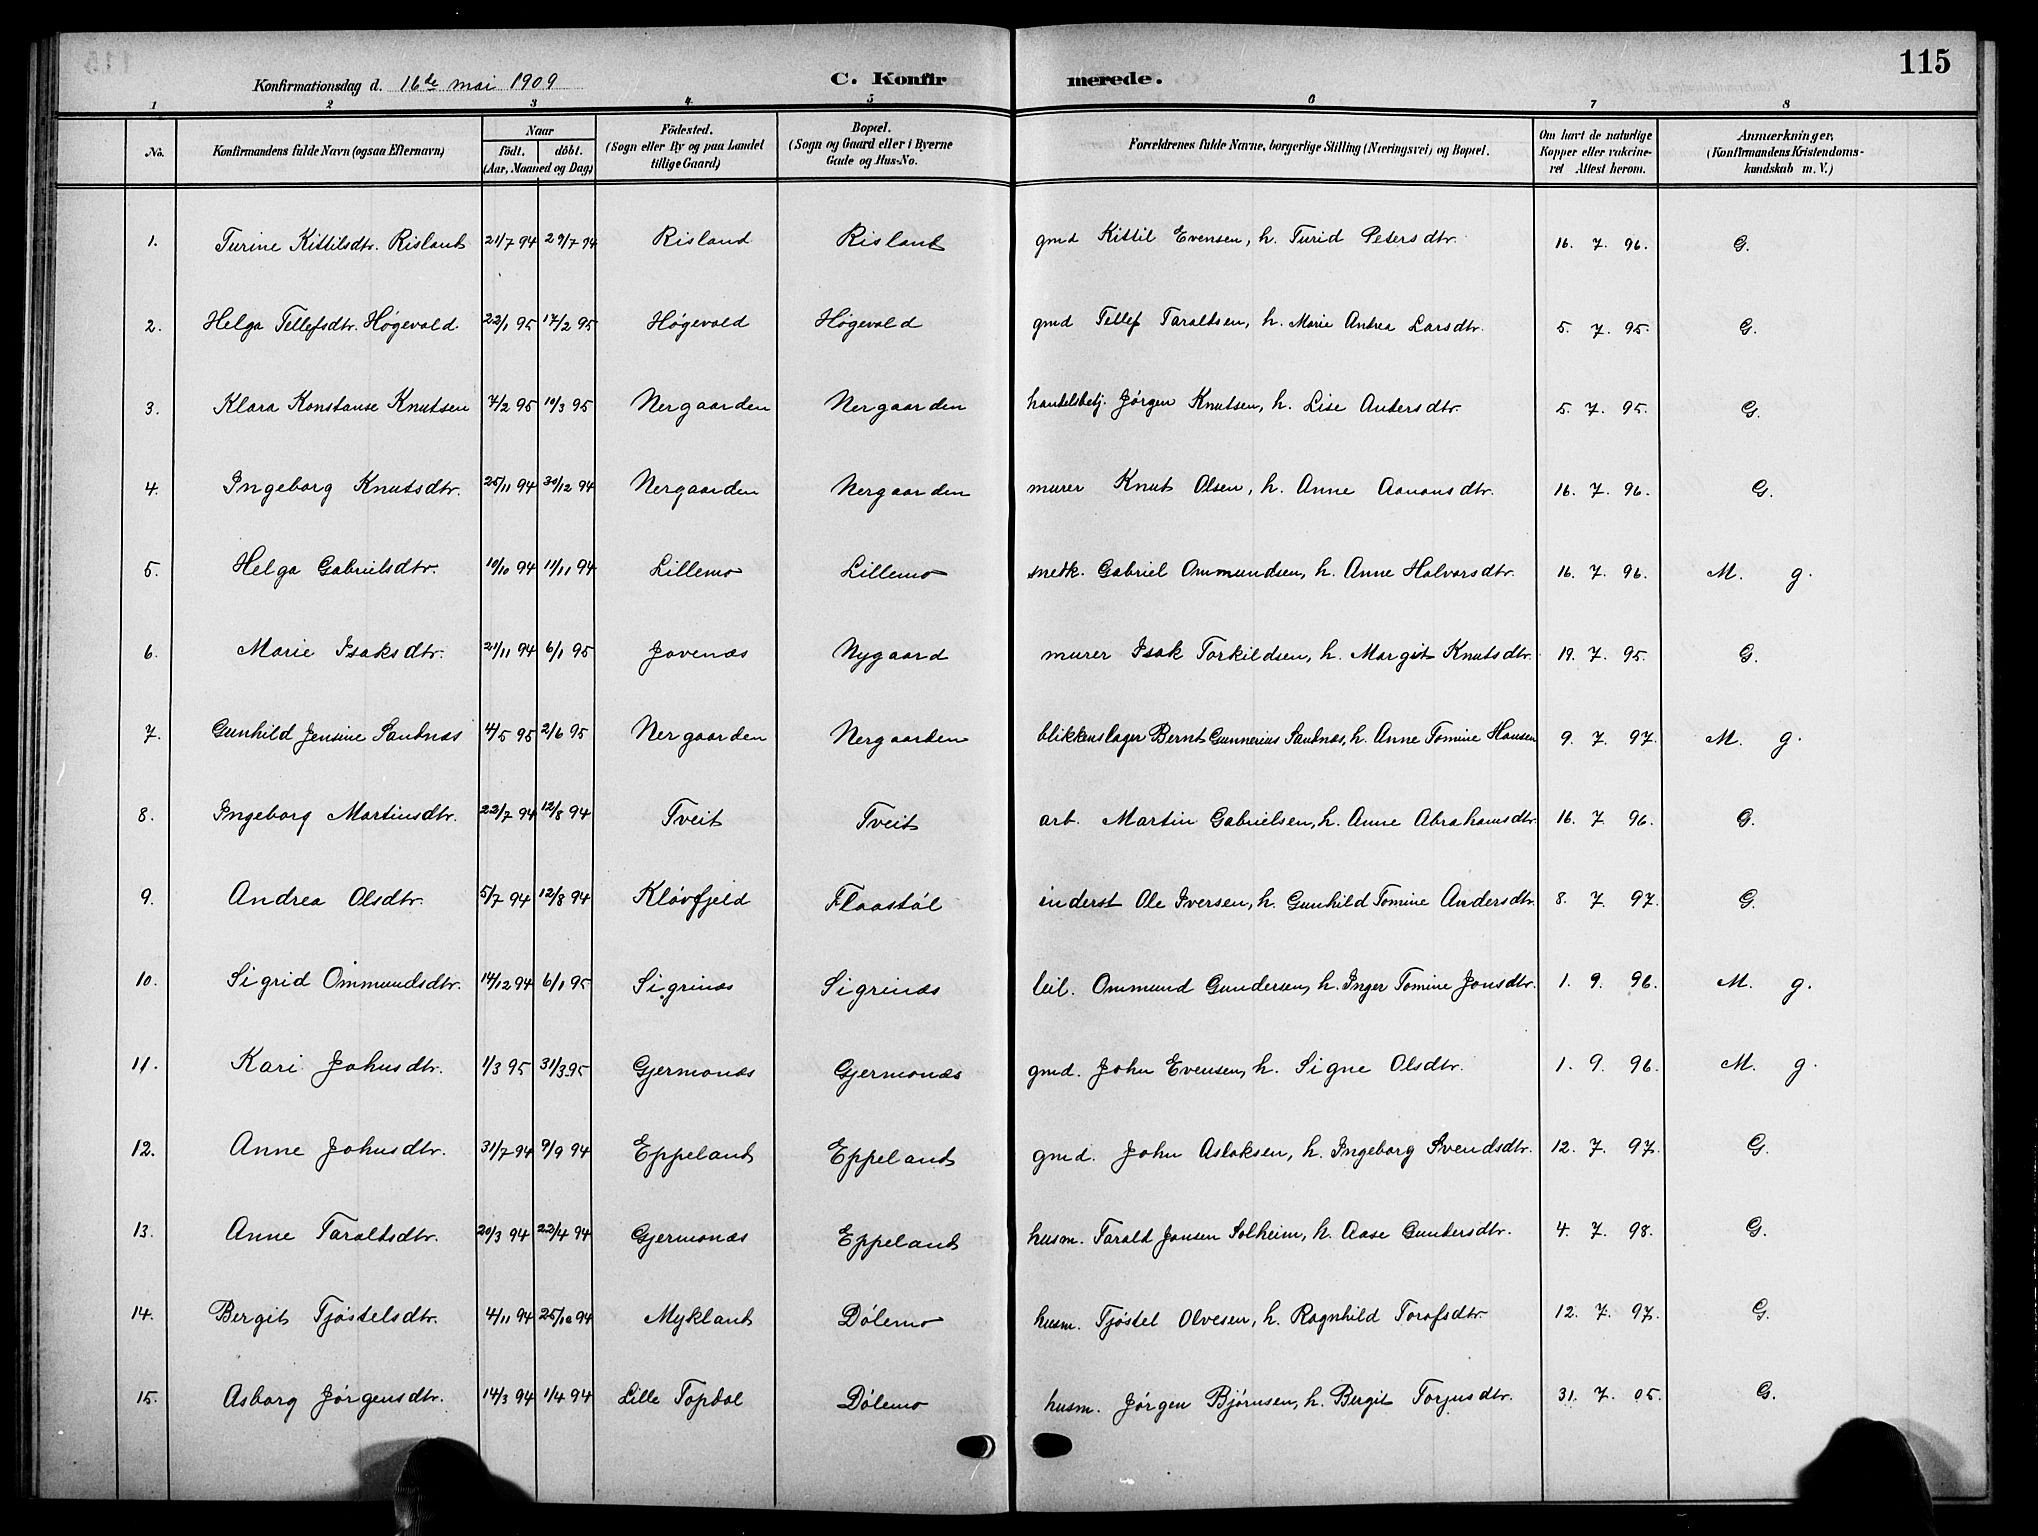 115
Konfirmationsdag d. 16de mai 1909 C. Konfirmerede.
1 2 3 4 5 6 7 8
No. Konfirmandens fulde Navn (ogsaa Efternavn) Naar födt. döbt. (Aar, Maaned og Dag) Födested. (Sogn eller By og paa Landet tillige Gaard) Bopæl. (Sogn og Gaard eller i Byerne Gade og Hus-No. Forældrenes fulde Navne, borgerlige Stilling (Næringsvei) og Bopæl. Om havt de naturlige Kopper eller vakcineret Attest herom. Anmærkninger, (Konfirmandens Kristendomskundskab m. V.)
1. Turine Kittilsdtr. Risland 21/7 94 29/7 94 Risland Risland gmd Kittil Evensen, h. Turid Petersdtr. 16. 7. 96. G.
2. Helga Tellefsdtr. Høgevold 22/1 95 17/2 95 Høgevold Høgevold gmd Tellef Taraldsen, h. Marie Andrea Larsdtr. 5. 7. 95. G.
3. Klara Konstanse Knutsen 7/2 95 10/3 95 Nergaarden Nergaarden handelsbetj. Jørgen Knutsen, h. Lise Andersdtr. 5. 7. 95. G.
4. Ingeborg Knutsdtr. 25/11 94 30/12 94 Nergaarden Nergaarden murer Knut Olsen, h. Anne Aanonsdtr. 16. 7. 96. G.
5. Helga Gabrielsdtr. 10/10 94 11/11 94 Lillemo Lillemo snedk. Gabriel Ommundsen, h. Anne Halvorsdtr. 16. 7. 96. M. g.
6. Marie Isaksdtr. 21/11 94 6/1 95 Jovenæs Nygaard murer Isak Torkildsen, h. Margit Knutsdtr. 19. 7. 95. G.
7. Gunhild Jensine Sandnæs 4/5 95 2/6 95 Nergaarden Nergaarden blikkenslager Bernt Gunnerius Sandnæs, h. Anne Tomine Hansen 9. 7. 97. M. g.
8. Ingeborg Martinsdtr. 22/7 94 12/8 94 Tveit Tveit arb. Martin Gabrielsen, h. Anne Abrahamsdtr. 16. 7. 96. G.
9. Andrea Olsdtr. 5/7 94 12/8 94 Kløvfjeld Flaastøl inderst Ole Iversen, h. Gunhild Tomine Andersdtr. 8. 7. 97. G.
10. Sigrid Ommundsdtr. 14/12 94 6/1 95 Sigrinæs Sigrinæs leil. Ommund Gundersen, h. Inger Tomine Jonsdtr. 1. 9. 96. M. g.
11. Kari Johnsdtr. 1/3 95 31/3 95 Gjermonæs Gjermonæs gmd. John Evensen, h. Signe Olsdtr. 1. 9. 96. M. g.
12. Anne Johnsdtr. 31/7 94 9/9 94 Eppeland Eppeland gmd. John Aslaksen, h. Ingeborg Svendsdtr. 12. 7. 97. G.
13. Anne Taraldsdtr. 20/3 94 22/4 94 Gjermonæs Eppeland husm. Tarald Jonsen Solheim, h. Aase Gundersdtr. 4. 7. 98. G.
14. Bergit Tjøstelsdtr. 4/11 94 25/12 94 Mykland Dølemo husm. Tjøstel Olvesen, h. Ragnhild Torafsdtr. 12. 7. 97. G.
15. Asborg Jørgensdtr. 14/3 94 1/4 94 Lille Topdal Dølemo husm. Jørgen Bjørnsen, h. Bergit Torjusdtr. 31. 7. 05. G.